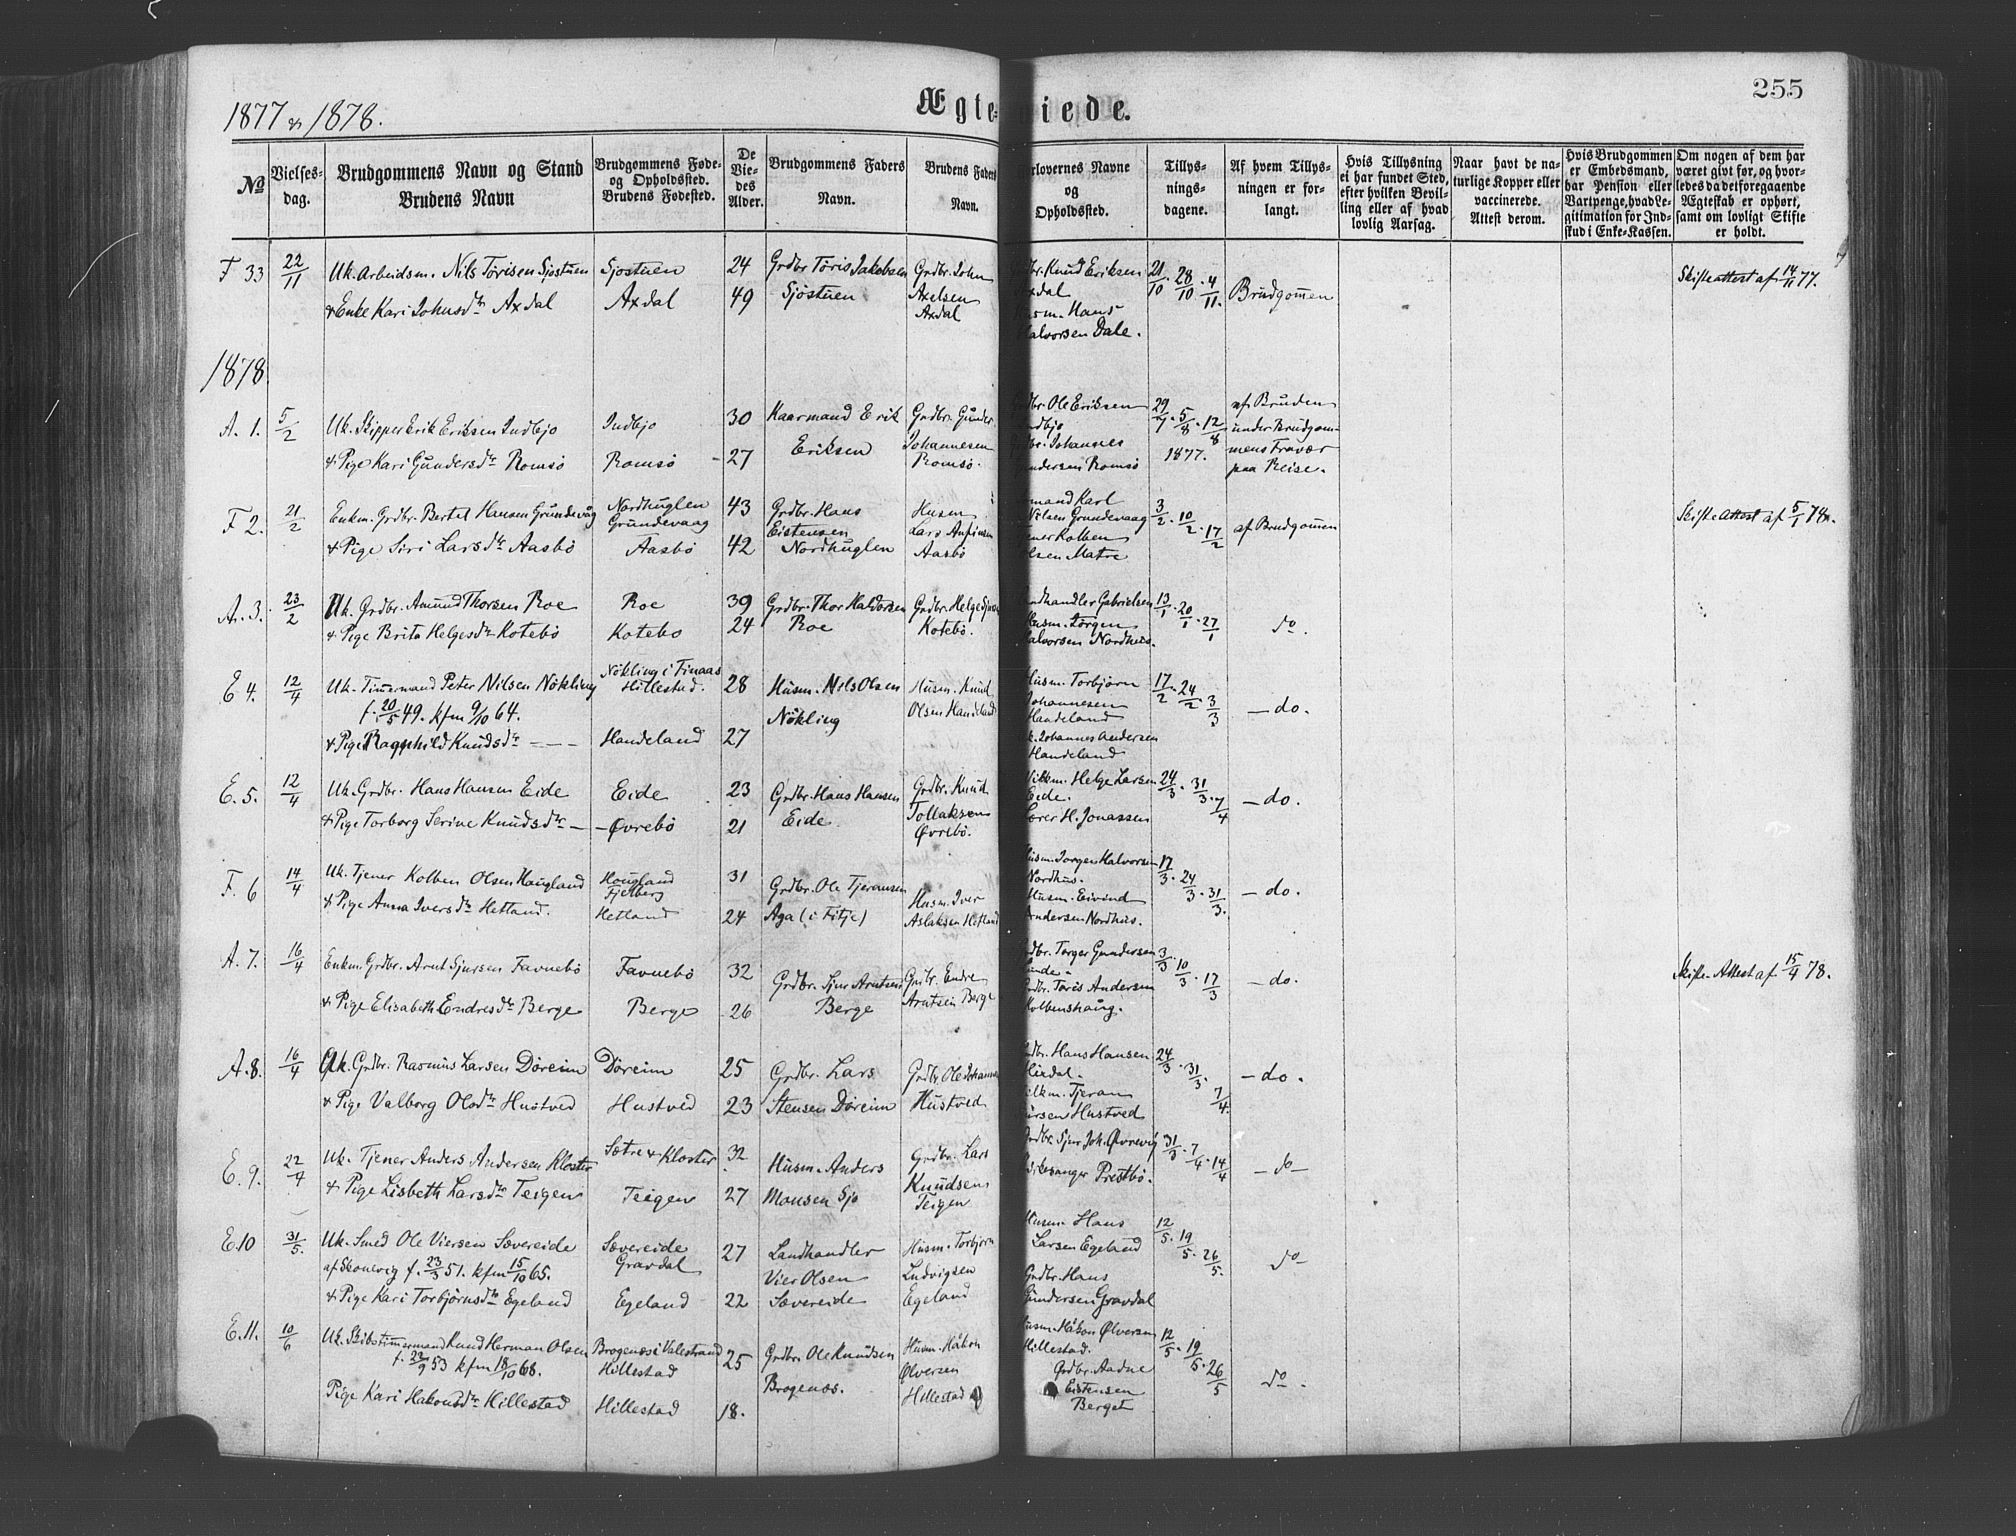 1877 & 1878.
Ægte- iede.
255
No
Vielses-
dag.
Brudgommens Navn og Stand
Brudens Navn
Brudgommens Føde-
og Opholdssted.
Brudens Fødested.
De
Vie-
des
Alder.
Brudgommens Faders
Navn.
Brudens Faders
Navn.
orlovernes Navne
og
Opholdssted.
Tillys-
nings-
dagene.
Af hvem Tillys-
ningen er for-
langt.
Hvis Tillysning
ei har fundet Sted,
efter hvilken Bevil-
ling eller af hvad
lovlig Aarsag.
Naar havt de na-
turlige Kopper eller
vaccinerede.
Attest derom.
Hvis Brudgommen
er Embedsmand,
har Pension eller
Vartpenge, hvad Le-
gitimation for Ind-
skud i Enke-Kassen.
Om nogen af dem har
været givt før, og hvor-
ledes da det foregaaende
Ægteskab er ophørt,
samt om lovligt Skifte
er holdt.
F 33 22/11 Uk. Arbeidsm. Nils Törisen Sjostuen Sjostuen 24 Grdbr Töris Jakobsen Grdbr. John Grdbr. Knud Eriksen 21/10 . 28/10 . 4/11. Brudgommen Skifteattest af 14/11 77.
& Enke Kari Johnsdtr Axdal Axdal 49 Sjöstuen Axelsen Axdal
Axdal Husm. Hans
Halvorsen Dale.
1878.
A. 1. 5/2 Uk. Skipper Erik Eriksen Indbjo Indbjo 30 Kaarmand Erik Grdbr. Gunder Grdbr. Ole Eriksen 29/7 . 5/8 . 12/8 af Bruden
Eriksen Johannesen Indbjo 1877. under Brudgom-
& Pige Kari Gundersdtr Romsö Romsö - 27 Romsö. Grdbr. Johannes mens Fravær
Gundersen Romsö paa Reise.
F 2. 21/2 Enkm. Grdbr. Bertel Hansen Grundevåg Nordhuglen 43 Grdbr. Hans Husm. mand Karl 3/2 . 10/2 . 17/2 af Brudgommen Skifte Attest af 5/1 78.
Grundevaag Eistensen Lars Anfinsen Nilsen Grundevaag
& Pige Siri Larsdtr Aasbö Aasbö 42 Nordhuglen Aasbö Kolben
Olsen Matre
A. 3. 23/2 Uk. Grdbr. Amund Thorsen Roe Roe 39 Grdbr. Thor Haldorsen Grdbr. Helge Landhandler Gabrielsen 13/1 . 20/1 . 27/1 do.
& Pige Brita Helgesdtr Kotebö Kotebo 24 Roe Kotebö. Husm. Jörgen
Halvorsen Nordhus.
E 4. 12/4 Uk. Timermand Peter Nilsen Nökling Nökling i Finaas 28 Husm. Nils Olsen Husm. Knud Husm. Torbjörn 17/2 . 24/2 3/3 - do.
f. 20/5 49. kfm 9/10 64. Hillestad. Nökling Olsen Handeland Johannesen
Handeland
& Pige Ragnhild Knudsdtr - - - Handeland 27 Johannes Andersen
Handeland
E. 5. 12/4 Uk. Grdbr. Hans Hansen Eide Eide 23 Grdbr. Hans Hansen Grdbr. Knud Helge Larsen 24/3 . 31/3 . 7/4 - do.
Eide Tollaksen Eide.
& Pige Torborg Serine Knudsdtr - - Øvrebö 21 Øvrebö. Lærer H. Jonassen
F. 6 14/4 Uk. Tjener Kolben Olsen Haugland Haugland 31 Grdbr. Ole Tjeransen Husm. Iver Husm. Jorgen Halvorsen 17/3 . 24/3 . 31/3. - do.
Fjelberg Nordhus.
& Pige Anna Iversdtr Hetland. Hetland 24 Aga (i Fitje) Aslaksen Hetland Husm. Eivind
Andersen Nordhus.
A. 7. 16/4 Enkm. Grdbr. Arnt Sjursen Favnebö Favnebö 32 Grdbr. Sjur Arntsen Grdbr. Endre Grdbr. Torger Gundersen 3/3 . 10/3 . 17/3 - do. Skifte-Attest af 15/4 78.
& Pige Elisabeth Endresdtr Berge Berge 26 Berge Arntsen Berge Grdbr. Töris Andersen
Kolbenshaug.
A. 8. 16/4 Uk. Grdbr. Rasmus Larsen Döreim Döreim 25 Grdbr. Lars Grdbr. Ole Johannes Grdbr. Hans Hansen 24/3 . 31/3 . 7/4 - do.
& Pige Valborg Olsdtr Hustved Hustved 23 Stensen Döreim Hustved Tjeran
Hustved
E. 9. 22/4 Uk. Tjener Anders Andersen Kloster Sætre & Kloster 32 Husm. Anders Grdbr. Lars Grdbr. Sjur Joh. Øvrevig 31/3 . 7/4 . 14/4 - do -
& Pige Lisbeth Larsdtr Teigen Teigen 27 Monsen Sjo Knudsen Kirkesanger Prestbö.
Teigen
E. 10 31/5. Uk. Smed Ole Viersen Sævereide Sævereide 27 Landhandler Husm. Torbjörn Husm. Hans 12/5 . 19/5 . 26/5. do -
af Skonevig f. 23/3 51. kfm 15/10 65. Gravdal Vier Olsen Ludvigsen Larsen Egeland
& Pige Kari Torbjörnsdtr Egeland Egeland 22 Sævereide Egeland Grdbr. Hans
Gundersen Gravdal
E. 11. 10/6 Uk. Skibstimmermand Knud Herman Olsen Brogenæs i Valestrand 25 Grdbr. Ole Knudsen Husm. Håkon Husm. Håkon Ølversen 12/5 . 19/5 . 26/5 do.
f. 22/9 53 kfm 18/10 68. Hillestad Brogenæs. Ølversen Hillestad.
Pige Kari Hakonsdtr Hillestad Hillestad 18. Hillestad Grdbr. Aadne
Eistensen
Berget